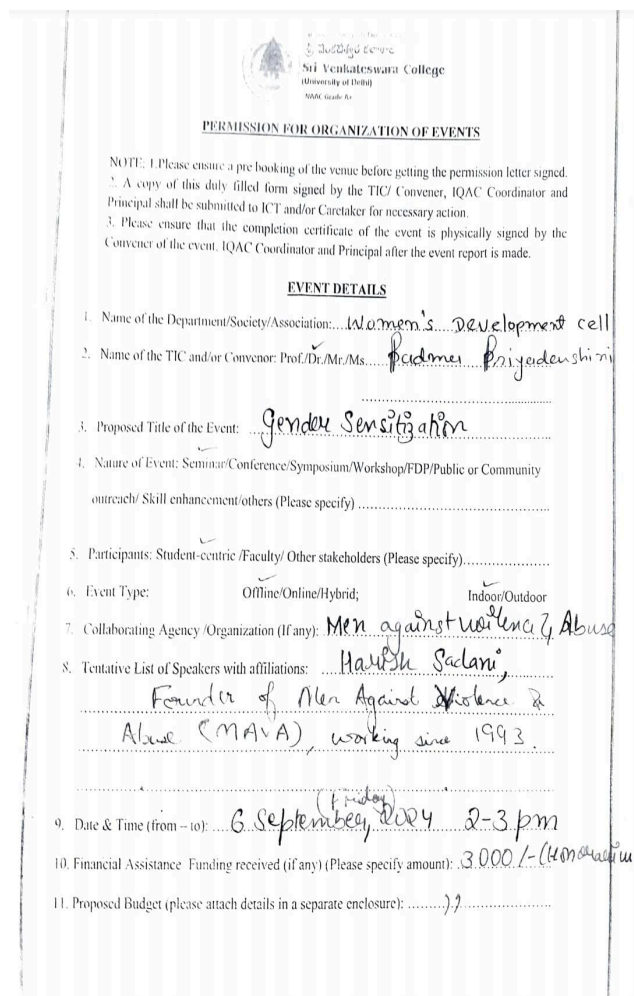 Sri Venkateswara College
(University of Delhi)
NAAC Grade A+
PERMISSION FOR ORGANIZATION OF EVENTS
NOTE: 1.Please ensure a pre booking of the venue before getting the permission letter signed.
2. A copy of this duly filled form signed by the TIC/ Convener, IQAC Coordinator and
Principal shall be submitted to ICT and/or Caretaker for necessary action.
3. Please ensure that the completion certificate of the event is physically signed by the
Convener of the event, IQAC Coordinator and Principal after the event report is made.
EVENT DETAILS
1. Name of the Department/Society/Association:....Women's Development cell
2. Name of the TIC and/or Convenor: Prof./Dr./Mr./Ms.....Padma Priyadarshini
3. Proposed Title of the Event: Gender Sensitization
4. Nature of Event: Seminar/Conference/Symposium/Workshop/FDP/Public or Community
outreach/ Skill enhancement/others (Please specify)
5. Participants: Student-centric /Faculty/ Other stakeholders (Please specify)
6. Event Type: Offline/Online/Hybrid; Indoor/Outdoor
7. Collaborating Agency /Organization (If any): Men against voilence & Abuse
8. Tentative List of Speakers with affiliations: Harish Sadani,
Founder of Men Against Violence &
Abuse (MAVA), working since 1993.
(Friday)
9. Date & Time (from – to): 6 September, 2024 2-3 pm
10. Financial Assistance Funding received (if any) (Please specify amount): 3000/-(Honorarium
11. Proposed Budget (please attach details in a separate enclosure): ,,